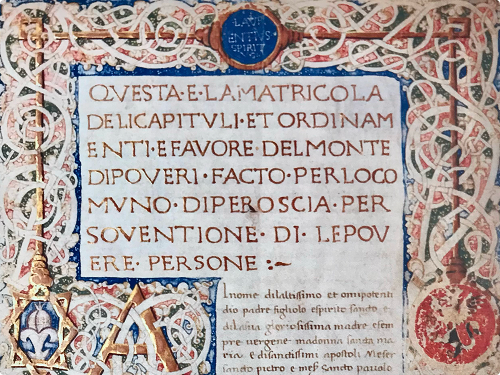 LAVR
ENTIVS
SPIRIT
QVESTA · E · LAMATRICOLA
DELICAPITVLI · ET ORDINAM
ENTI · E FAVORE · DEL MONTE
DIPOVERI · FACTO · PERLOCO
MVNO · DIPEROSCIA · PER
SOVENTIONE · DI · LE POV
ERE · PERSONE :~
A lnome dilaltissimo et omnipotenti
dio padre figliolo espirito sancto et
dilasua gloriosissima madre esem
pre vergene madonna sancta ma
ria e disanctissimi apostoli Meser
sancto pietro e mesʃ Sancto paolo